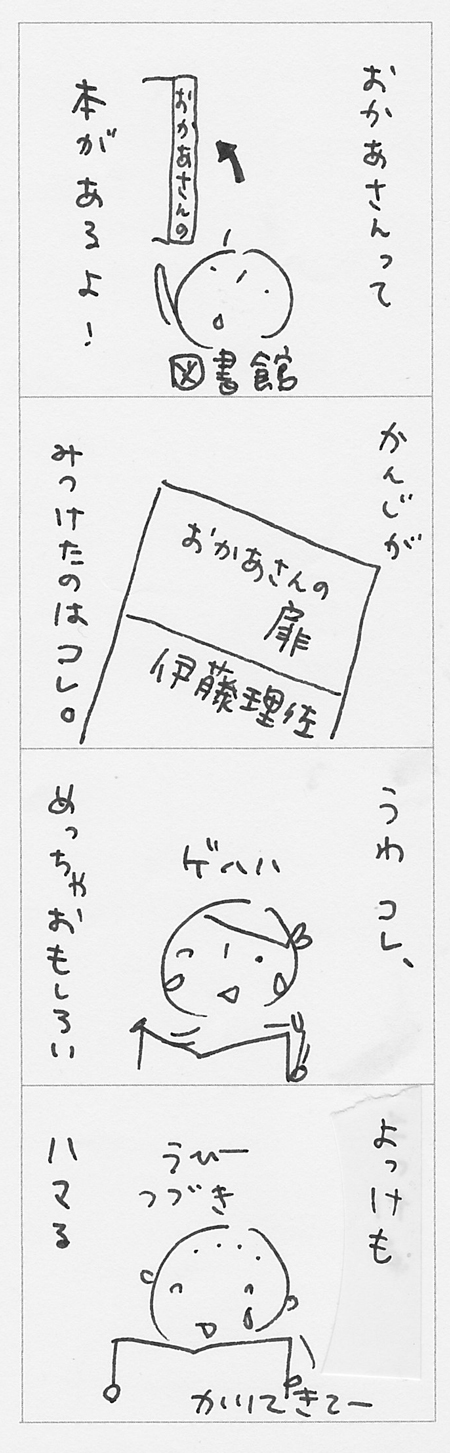 おかあさんって
本があるよ！
おかあさんの
図書館
かんじが
みつけたのはコレ。
おかあさんの
扉
伊藤理佐
うわコレ、
めっちゃおもしろい
ゲハハハ
よっけも
ハマる
うひー
つづき
かりてきてー